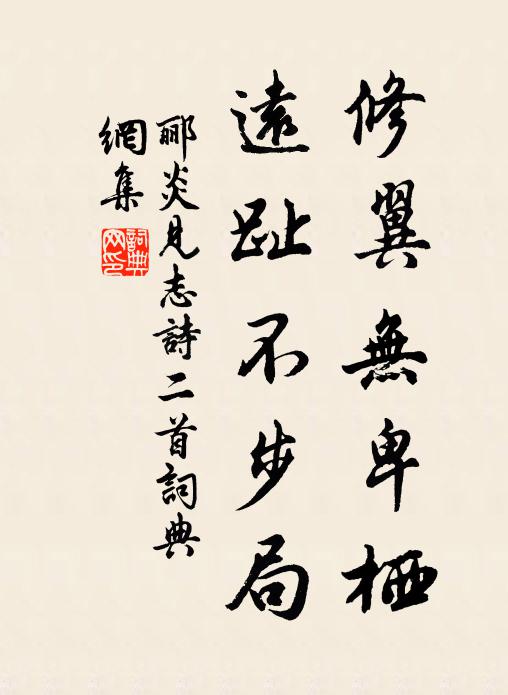 修翼無卑栖
遠趾不步局
酈炎見志詩二首詞典
網集
詞典
网印